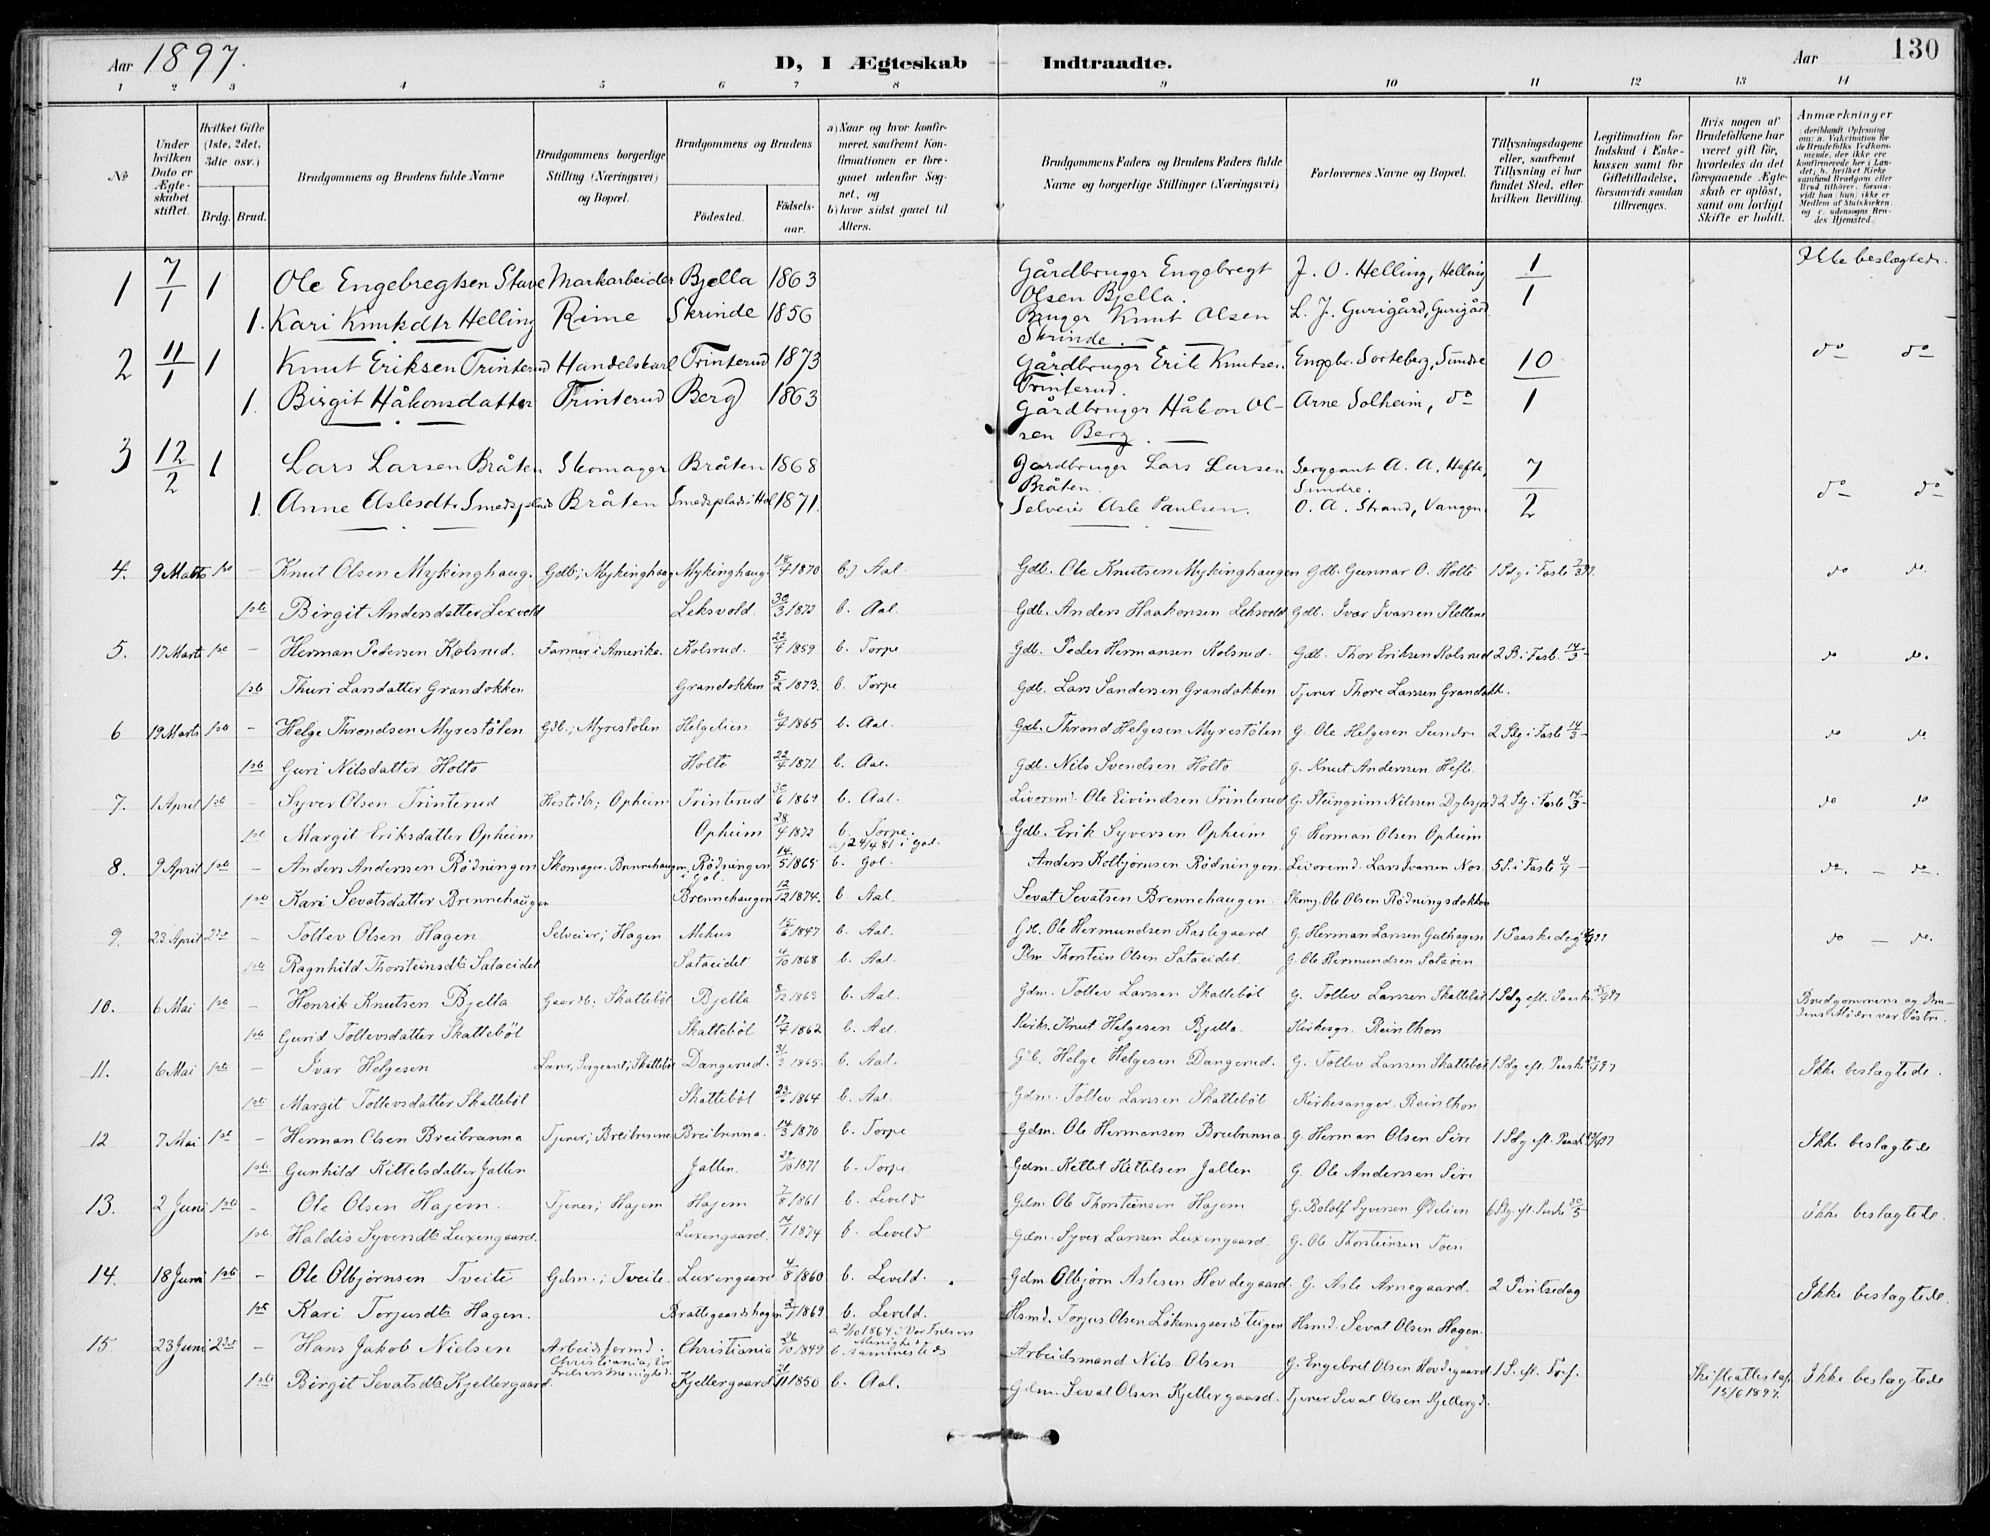 Aar 1897.
D, I Ægteskab Indtraadte.
Aar 130
1 2 3 4 5 6 7 8 9 10 11 12 13 14
No
Under hvilken Dato er Ægteskabet stiftet.
Hvilket Gifte (1ste, 2det, 3die osv.)
Brdg. Brud.
Brudgommens og Brudens fulde Navne
Brudgommens borgerlige Stilling (Næringsvei) og Bopæl.
Brudgommens og Brudens
Födested.
Födselsaar.
a) Naar og hvor konfirmeret, saafremt Konfirmationen er foregaaet udenfor Sognet, og
b) hvor sidst gaaet til Alters.
Brudgommens Faders og Brudens Faders fulde Navne og borgerlige Stillinger (Næringsvei)
Forlovernes Navne og Bopæl.
Tillysningsdagene eller, saafremt Tillysning ei har fundet Sted, efter hvilken Bevilling.
Legitimation for Indskud i Enkekassen samt for Giftetilladelse, forsaavidt saadan tiltrænges.
Hvis nogen af Brudefolkene har været gift för, hvorledes da det foregaaende Ægteskab er oplöst, samt om lovligt Skifte er holdt.
Anmærkninger (deriblandt Oplysning om: a. Vakcination for de Brudefolks Vedkommende, der ikke ere konfirmerede her i Landet; b. hvilket Kirkesamfund Brudgom eller Brud tilhörer, forsaavidt han (hun) ikke er Medlem af Statskirken, og c. udensogns Brudes Hjemsted.
1 7/1 1 Ole Engebregtsen Stave Markarbeider Bjella 1863 Gårdbruger Engebregt Olsen Bjella. J. O. Helling, Helling 1/1 Ikke beslægtede.
1. Kari Knutsdtr Helling Rime Skrinde 1856 Bruger Knut Olsen Skrinde. L. J. Gurigård, Gurigård
2 11/1 1 Knut Eriksen Trinterud Handelskarl Trinterud 1873 Gårdbruger Erik Knutsen Trinterud. Engebr. Sorteberg, Sundre 10/1 do do
1. Birgit Håkonsdatter Trinterud Berg 1863 Gårdbruger Håkon Olsen Berg. Arne Solheim, do
3 12/2 1 Lars Larsen Bråten Skomager Bråten 1868 Gardbruger Lars Larsen Bråten. Sergeant A. A. Hefte, Sundre. 7/2 do do
1. Anne Aslesdtr Smedsplads Bråten Smedsplads i Hol 1871. Selveier Asle Paulsen. O. A. Strand, Vangen
4. 9 Marts 1ste - Knut Olsen Mykinghaug. Gdb. i Mykinghaug Mykinghaug. 18/7 1870 b.) Aal. Gdb. Ole Knutsen Mykinghaugen Gdb. Gunnar O. Holto 1 Sdg i Faste do do.
1ste Birgit Andersdatter Lexvold Leksvold. 30/3 1872 b. Aal. Gdb. Anders Haakensen Leksvold Gdb. Ivar Ivarsen Slettene
5. 17 Marts 1ste - Herman Pedersen Kolsrud. Farmer i Amerika. Kolsrud. 22/7 1859 b. Torpe Gdb. Peder Hermansen Kolsrud. Gdb. Thor Eriksen Kolsrud 2 S. i Fast. 14/3 do do.
1ste Thuri Larsdatter Grandokken Grandokken 5/2 1873. b. Torpe Gdb. Lars Sandersen Grandokken Tjener Thore Larsen Grandokk.
6 19 Marts 1ste - Helge Throndsen Myrestölen Gdb.; Myrestölen Helgelien 6/7 1865 b. Aal. Gdb. Thrond Helgesen Myrestölen G. Ole Helgesen Sundre 2 Sdg i Faste 14/3 do do.
1ste Guri Nilsdatter Holto Holto 22/7 1871 b. Aal. Gdb. Nils Svendsen Holto G. Knut Andersen Hefte.
7. 1 April 1ste - Syver Olsen Trinterud Opheim Trinterud 30/6 1869 b. Aal. Livorem. Ole Eivindsen Trinterud G. Steingrim Nilssen 2 Sdg i Faste 14/3 do do
1ste Margit Eriksdatter Opheim Opheim 28/4 1872 b. Torpe. Gdb. Erik Syversen Opheim G. Herman Olsen Opheim
8. 9 April 1ste - Anders Andersen Rödningen Skomager Brennehaugen Rödningen i Gol. 14/5 1865 a) 24/4 81 i Gol. b. Gol. Anders Kolbjørnsen Rödningen. Livoremd. Lars Ivarsen Nos. 5 S. i Faste 4/4 do. - do.
1ste Kari Sevatsdatter Brennehaugen Brennehaugen 12/12 1874. b. Aal. Sevat Sevatsen Brennehaugen. Skomg. Ole Olsen Rødningsdokken
9. 23 April 2det - Tollev Olsen Hagen Selveier; Hagen Mehus 15/6 1847 b. Aal. Gdb. Ole Hermundsen Kaslegaard G. Herman Larsen Gulhagen 1 Paaskedag do - do.
1ste Ragnhild Thorsteinsdtr Sataeidet Sataeidet 4/10 1868 b. Aal. Plm. Thorstein Olsen Sataeidet G. Ole Hermundsen Sataøen
10. 6 Mai 1ste - Henrik Knutsen Bjella Gaardb. Skattebøl Bjella 8/12 1863 b. Aal. Gdm. Tollev Larssen Skattebøl G. Tollev Larssen Skattebøl 1 Sdg eft. Paaske Brudgommens og Brudens Mödre var Söstre.
1ste Gurid Tollevsdatter Skattebøl Skattebøl 17/7 1862 b. Aal. Kirks. Knut Helgesen Bjella. Kirkesgr. Reinthon
11. 6 Mai 1ste - Ivar Helgesen Sergeant; Skattebøl Dangerud. 31/3 1865. b. Aal. Gdb. Helge Helgesen Dangerud. G. Tollev Larssen Skattebøl 1 Sdg eft. Paaske Ikke beslægtede.
1ste Margit Tollevsdatter Skattebøl Skattebøl 1864 b. Aal. Gdm. Tollev Larssen Skattebøl Kirkesanger Reinthon
12 7 Mai 1ste - Herman Olsen Breibrenna Tjener; Breibrenna Breibrenna. 14/3 1870 b. Torpe Gdm. Ole Hermansen Breibrenna G. Herman Olsen Sire 1 Sdg eft. Paaske Ikke beslægtede
1ste Gunhild Kittelsdatter Jallen Jallen. 29/10 1871 b. Torpe Gdm. Kettil Kettilsen Jallen G. Ole Anderssen Sire
13. 2 Juni 1ste - Ole Olsen Hajem. Tjener; Hajem Hajem 7/8 1861 b. Leveld Gdm. Ole Thorsteinsen Hajem G. Bololf Syversen Ødelien 6 Sdg. eft. Paaske 30/5 Ikke beslægtede.
1ste Haldis Syversdtr Luxengaard. Luxengaard. 7/7 1874 b. Leveld Gdm. Syver Larssen Luxengaard. G. Ole Thorsteinsen Toen
14. 18 Juni 1ste - Ole Olbjørnsen Tveito Gdm.; Tveito. Luxengaard 4/8 1860 b. Leveld. Gdm Olbjørn Aslesen Hovdegaard G. Asle Arnegaard. 2 Pintsedag Ikke beslægtede.
1ste Kari Torjusdtr Hagen. Brattegaardshagen 2/7 1869 b. Leveld. Hsmd. Torjus Olsen Lökensgaardsteigen Hsmd. Sevat Olsen Hagen.
15 23 Juni 2det - Hans Jakob Nielsen Arbeidsformd. Christiania, Vor Frelsers Menighed. Christiania 26/10 1849 a 2/10 1864 i Vor Frelsers Menighed b. sammesteds Arbeidsmand Nils Olsen G. Engebret Olsen Hovdegaard 1 S. eft. Tref. Skifteattest af 15/6 1897. Ikke beslægtede
1ste Birgit Sevatsdtr Kjellergaard. Kjellergaard 21/11 1850 b. Aal. Gdm. Sevat Olsen Kjellergaard. Tjener Sevat Olsen Kjellergd.